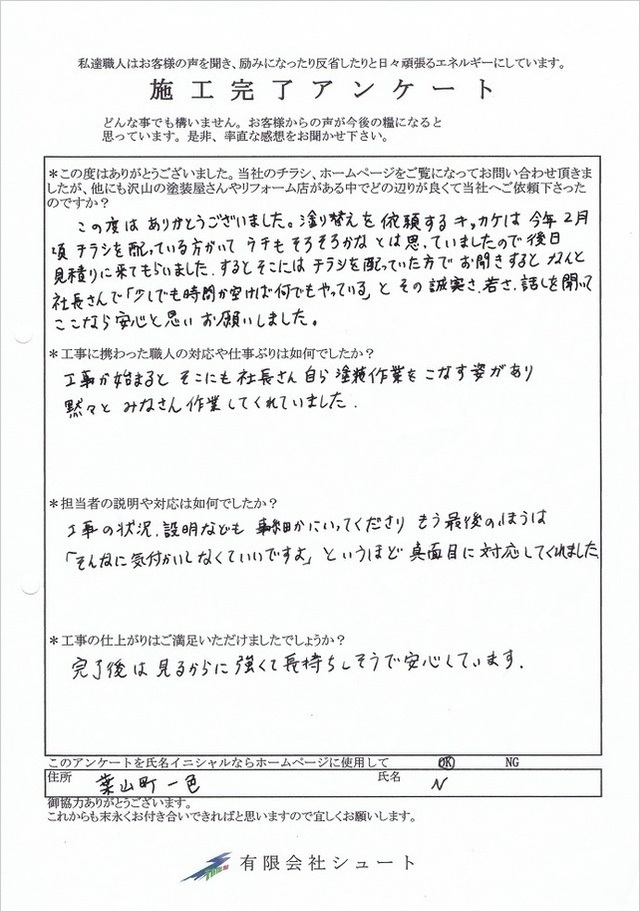 私達職人はお客様の声を聞き、励みになったり反省したりと日々頑張るエネルギーにしています。
施工完了アンケート
どんな事でも構いません。お客様からの声が今後の糧になると
思っています。是非、率直な感想をお聞かせ下さい。
＊この度はありがとうございました。当社のチラシ、ホームページをご覧になってお問い合わせ頂きま
したが、他にも沢山の塗装屋さんやリフォーム店がある中でどの辺りが良くて当社へご依頼下さった
のですか？
この度は ありがとうございました。塗り替えを依頼するキッカケは今年2月
頃 チラシを配っている方がいて ウチもそろそろかな とは思っていましたので後日
見積りに来てもらいました. するとそこには チラシを配っていた方で お聞きすると なんと
社長さんで「少しでも時間が空けば何でもやっている」と その誠実さ.若さ.話しを聞いて
ここなら安心と思い お願いしました。
＊工事に携わった職人の対応や仕事ぶりは如何でしたか？
工事が始まると そこにも社長さん自ら塗装作業をこなす姿があり
黙々と みなさん作業してくれていました.
＊担当者の説明や対応は如何でしたか？
工事の状況.説明なども 事細かにいってくださり もう最後のほうは
「そんなに気付かいしなくていいですよ」というほど 真面目に対応してくれました
＊工事の仕上がりはご満足いただけましたでしょうか？
完了後は見るからに強くて長持ちしそうで安心しています.
このアンケートを氏名イニシャルならホームページに使用して OK NG
住所 葉山町一色 氏名 N
御協力ありがとうございます。
これからも末永くお付き合いできればと思いますので宜しくお願いします。
有限会社シュート